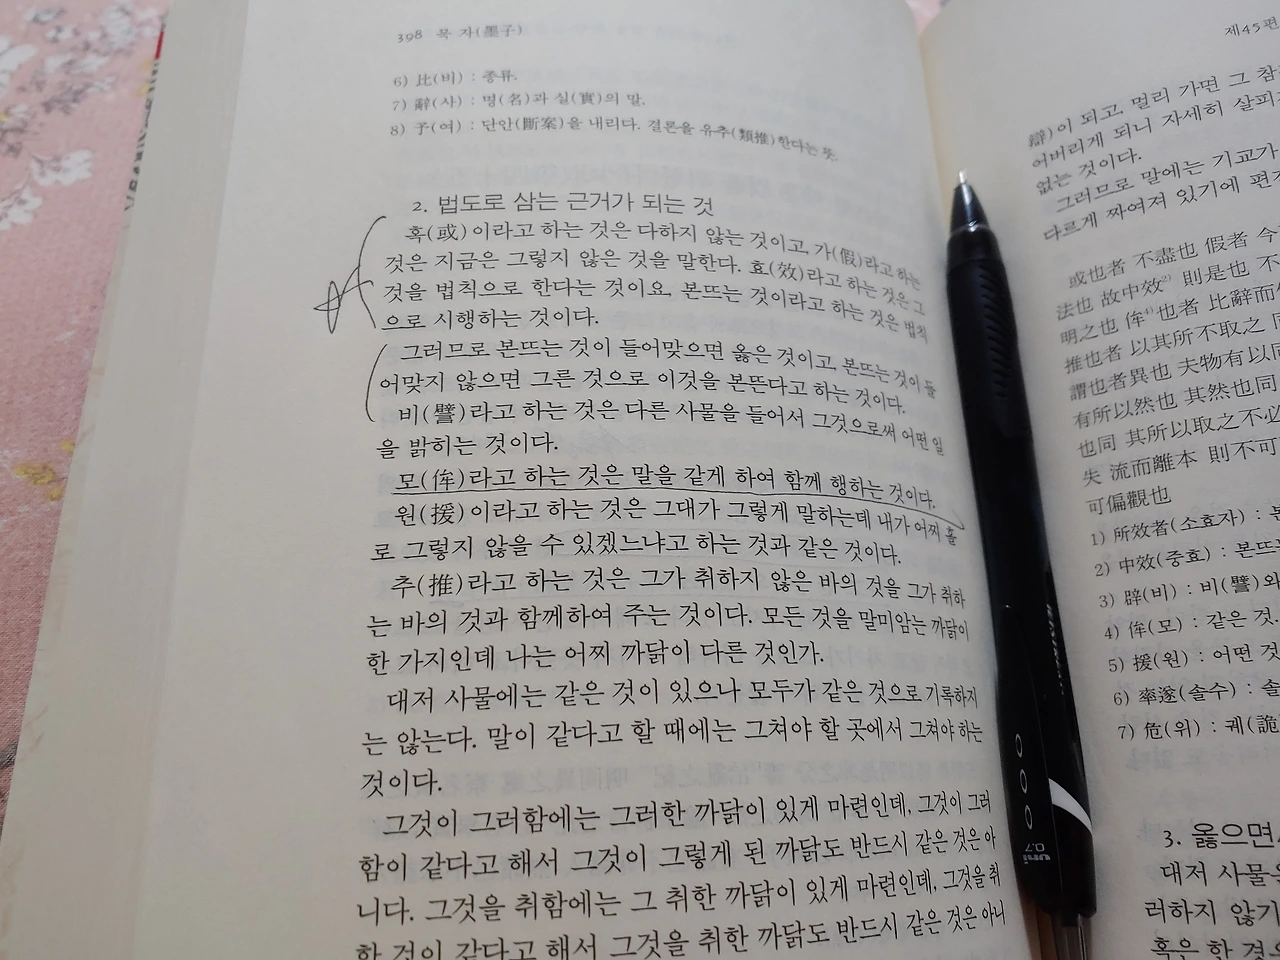 398 묵 자(墨子)
6) 比(비) : 종류.
7) 辭(사) : 명(名)과 실(實)의 말.
8) 予(여) : 단안(斷案)을 내리다. 결론을 유추(類推)한다는 뜻.
2. 법도로 삼는 근거가 되는 것
혹(或)이라고 하는 것은 다하지 않는 것이고, 가(假)라고 하는
것은 지금은 그렇지 않은 것을 말한다. 효(效)라고 하는 것은 그
것을 법칙으로 한다는 것이요, 본뜨는 것이라고 하는 것은 법칙
으로 시행하는 것이다.
그러므로 본뜨는 것이 들어맞으면 옳은 것이고, 본뜨는 것이 들
어맞지 않으면 그른 것으로 이것을 본뜬다고 하는 것이다.
비(譬)라고 하는 것은 다른 사물을 들어서 그것으로써 어떤 일
을 밝히는 것이다.
모(侔)라고 하는 것은 말을 같게 하여 함께 행하는 것이다.
원(援)이라고 하는 것은 그대가 그렇게 말하는데 내가 어찌 홀
로 그렇지 않을 수 있겠느냐고 하는 것과 같은 것이다.
추(推)라고 하는 것은 그가 취하지 않은 바의 것을 그가 취하
는 바의 것과 함께하여 주는 것이다. 모든 것을 말미암는 까닭이
한 가지인데 나는 어찌 까닭이 다른 것인가.
대저 사물에는 같은 것이 있으나 모두가 같은 것으로 기록하지
는 않는다. 말이 같다고 할 때에는 그쳐야 할 곳에서 그쳐야 하는
것이다.
그것이 그러함에는 그러한 까닭이 있게 마련인데, 그것이 그러
함이 같다고 해서 그것이 그렇게 된 까닭도 반드시 같은 것은 아
니다. 그것을 취함에는 그 취한 까닭이 있게 마련인데, 그것을 취
한 것이 같다고 해서 그것을 취한 까닭도 반드시 같은 것은 아니
제45편
辯)이 되고, 멀리 가면 그 참
어버리게 되니 자세히 살피
없는 것이다.
그러므로 말에는 기교가
다르게 짜여져 있기에 편
或也者 不盡也 假者 今
法也 故中效2) 則是也 不
明之也 侔4)也者 比辭而
推也者 以其所不取之 同
謂也者異也 夫物有以同
有所以然也 其然也同
也同 其所以取之不必
失 流而離本 則不可
可偏觀也
1) 所效者(소효자) : 본
2) 中效(중효) : 본뜨
3) 辟(비) : 비(譬)와
4) 侔(모) : 같은 것.
5) 援(원) : 어떤 것
6) 率遂(솔수) : 솔
7) 危(위) : 궤(詭
3. 옳으면
대저 사물은
러하지 않기
혹은 한 경우
uni
0.7